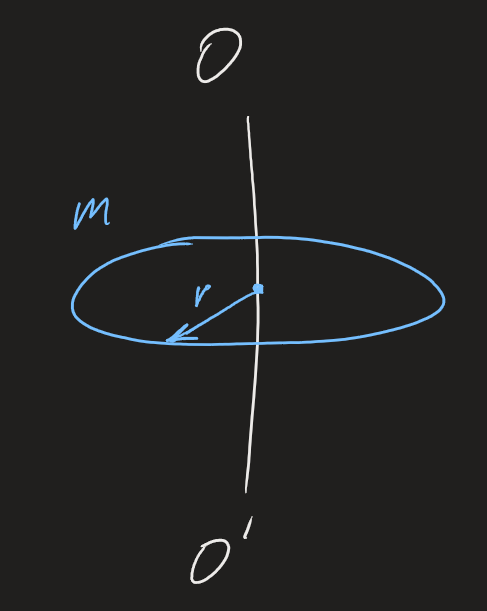 O
m
r
O'